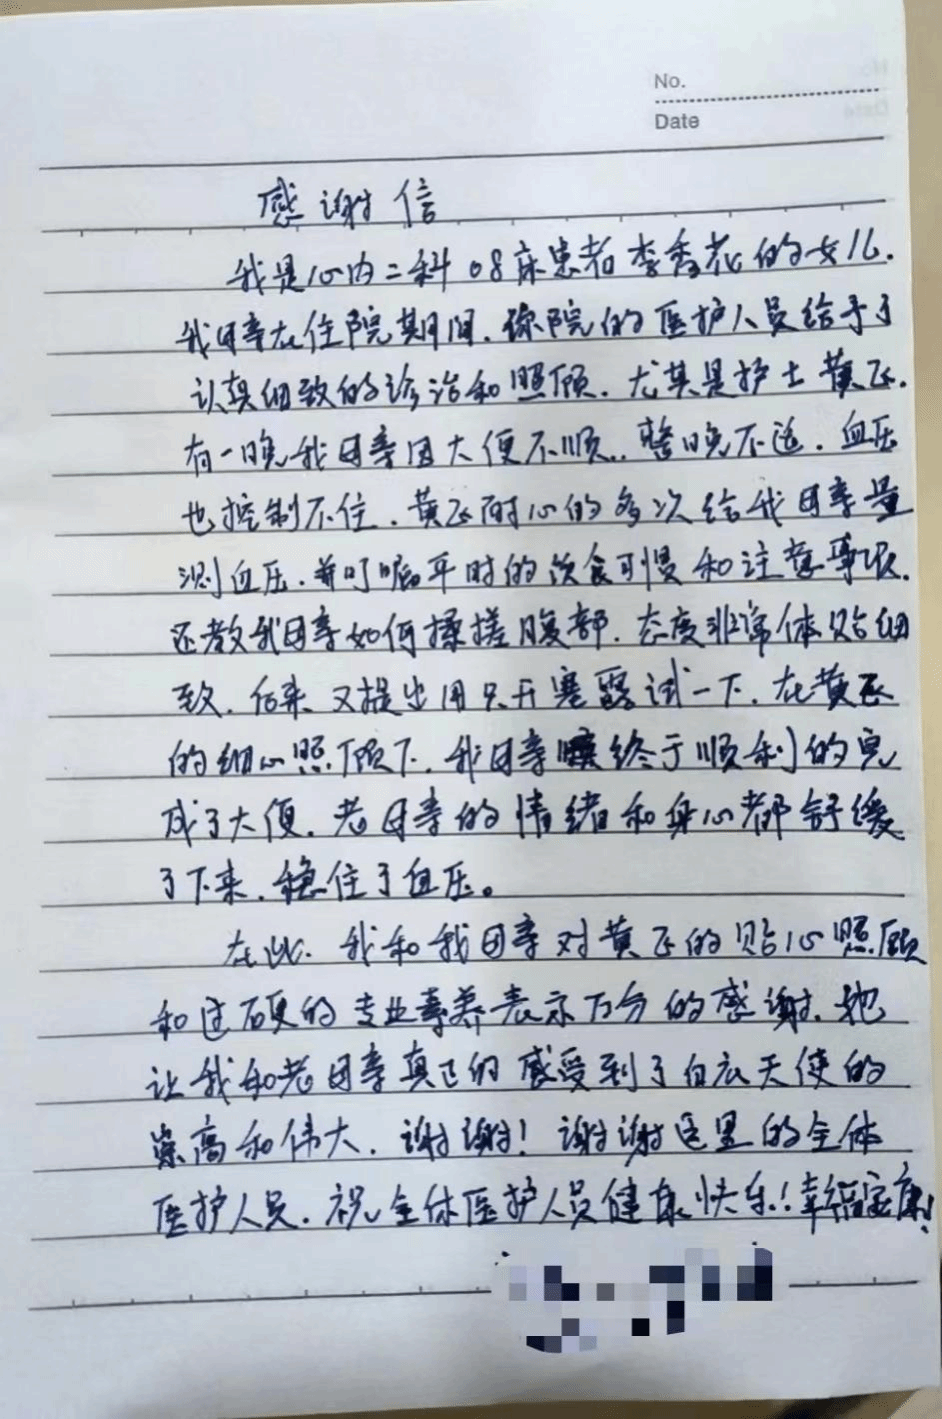 No.
Date
感谢信
我是心内二科08床患者李秀花的女儿.
我母亲在住院期间.你院的医护人员给予了
认真细致的诊治和照顾.尤其是护士黄正.
有一晚我母亲因大便不顺..整晚不适.血压
也控制不住.黄正耐心的多次给我母亲量
测血压.并叮嘱平时的饮食习惯和注意事项.
还教我母亲如何揉搓腹部.态度非常体贴细
致.后来又提出用只开塞露试一下.在黄正
的细心照顾下.我母亲终于顺利的完
成了大便.老母亲的情绪和身心都舒缓
了下来.稳住了血压。
在此.我和我母亲对黄正的贴心照顾
和过硬的专业素养表示万分的感谢.她
让我和老母亲真正的感受到了白衣天使的
崇高和伟大.谢谢!谢谢这里的全体
医护人员.祝全体医护人员健康快乐!幸福安康!